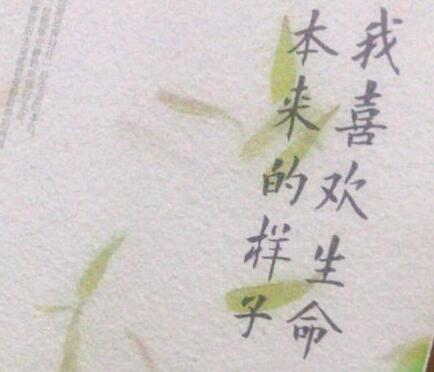 我喜欢生命
本来的样子